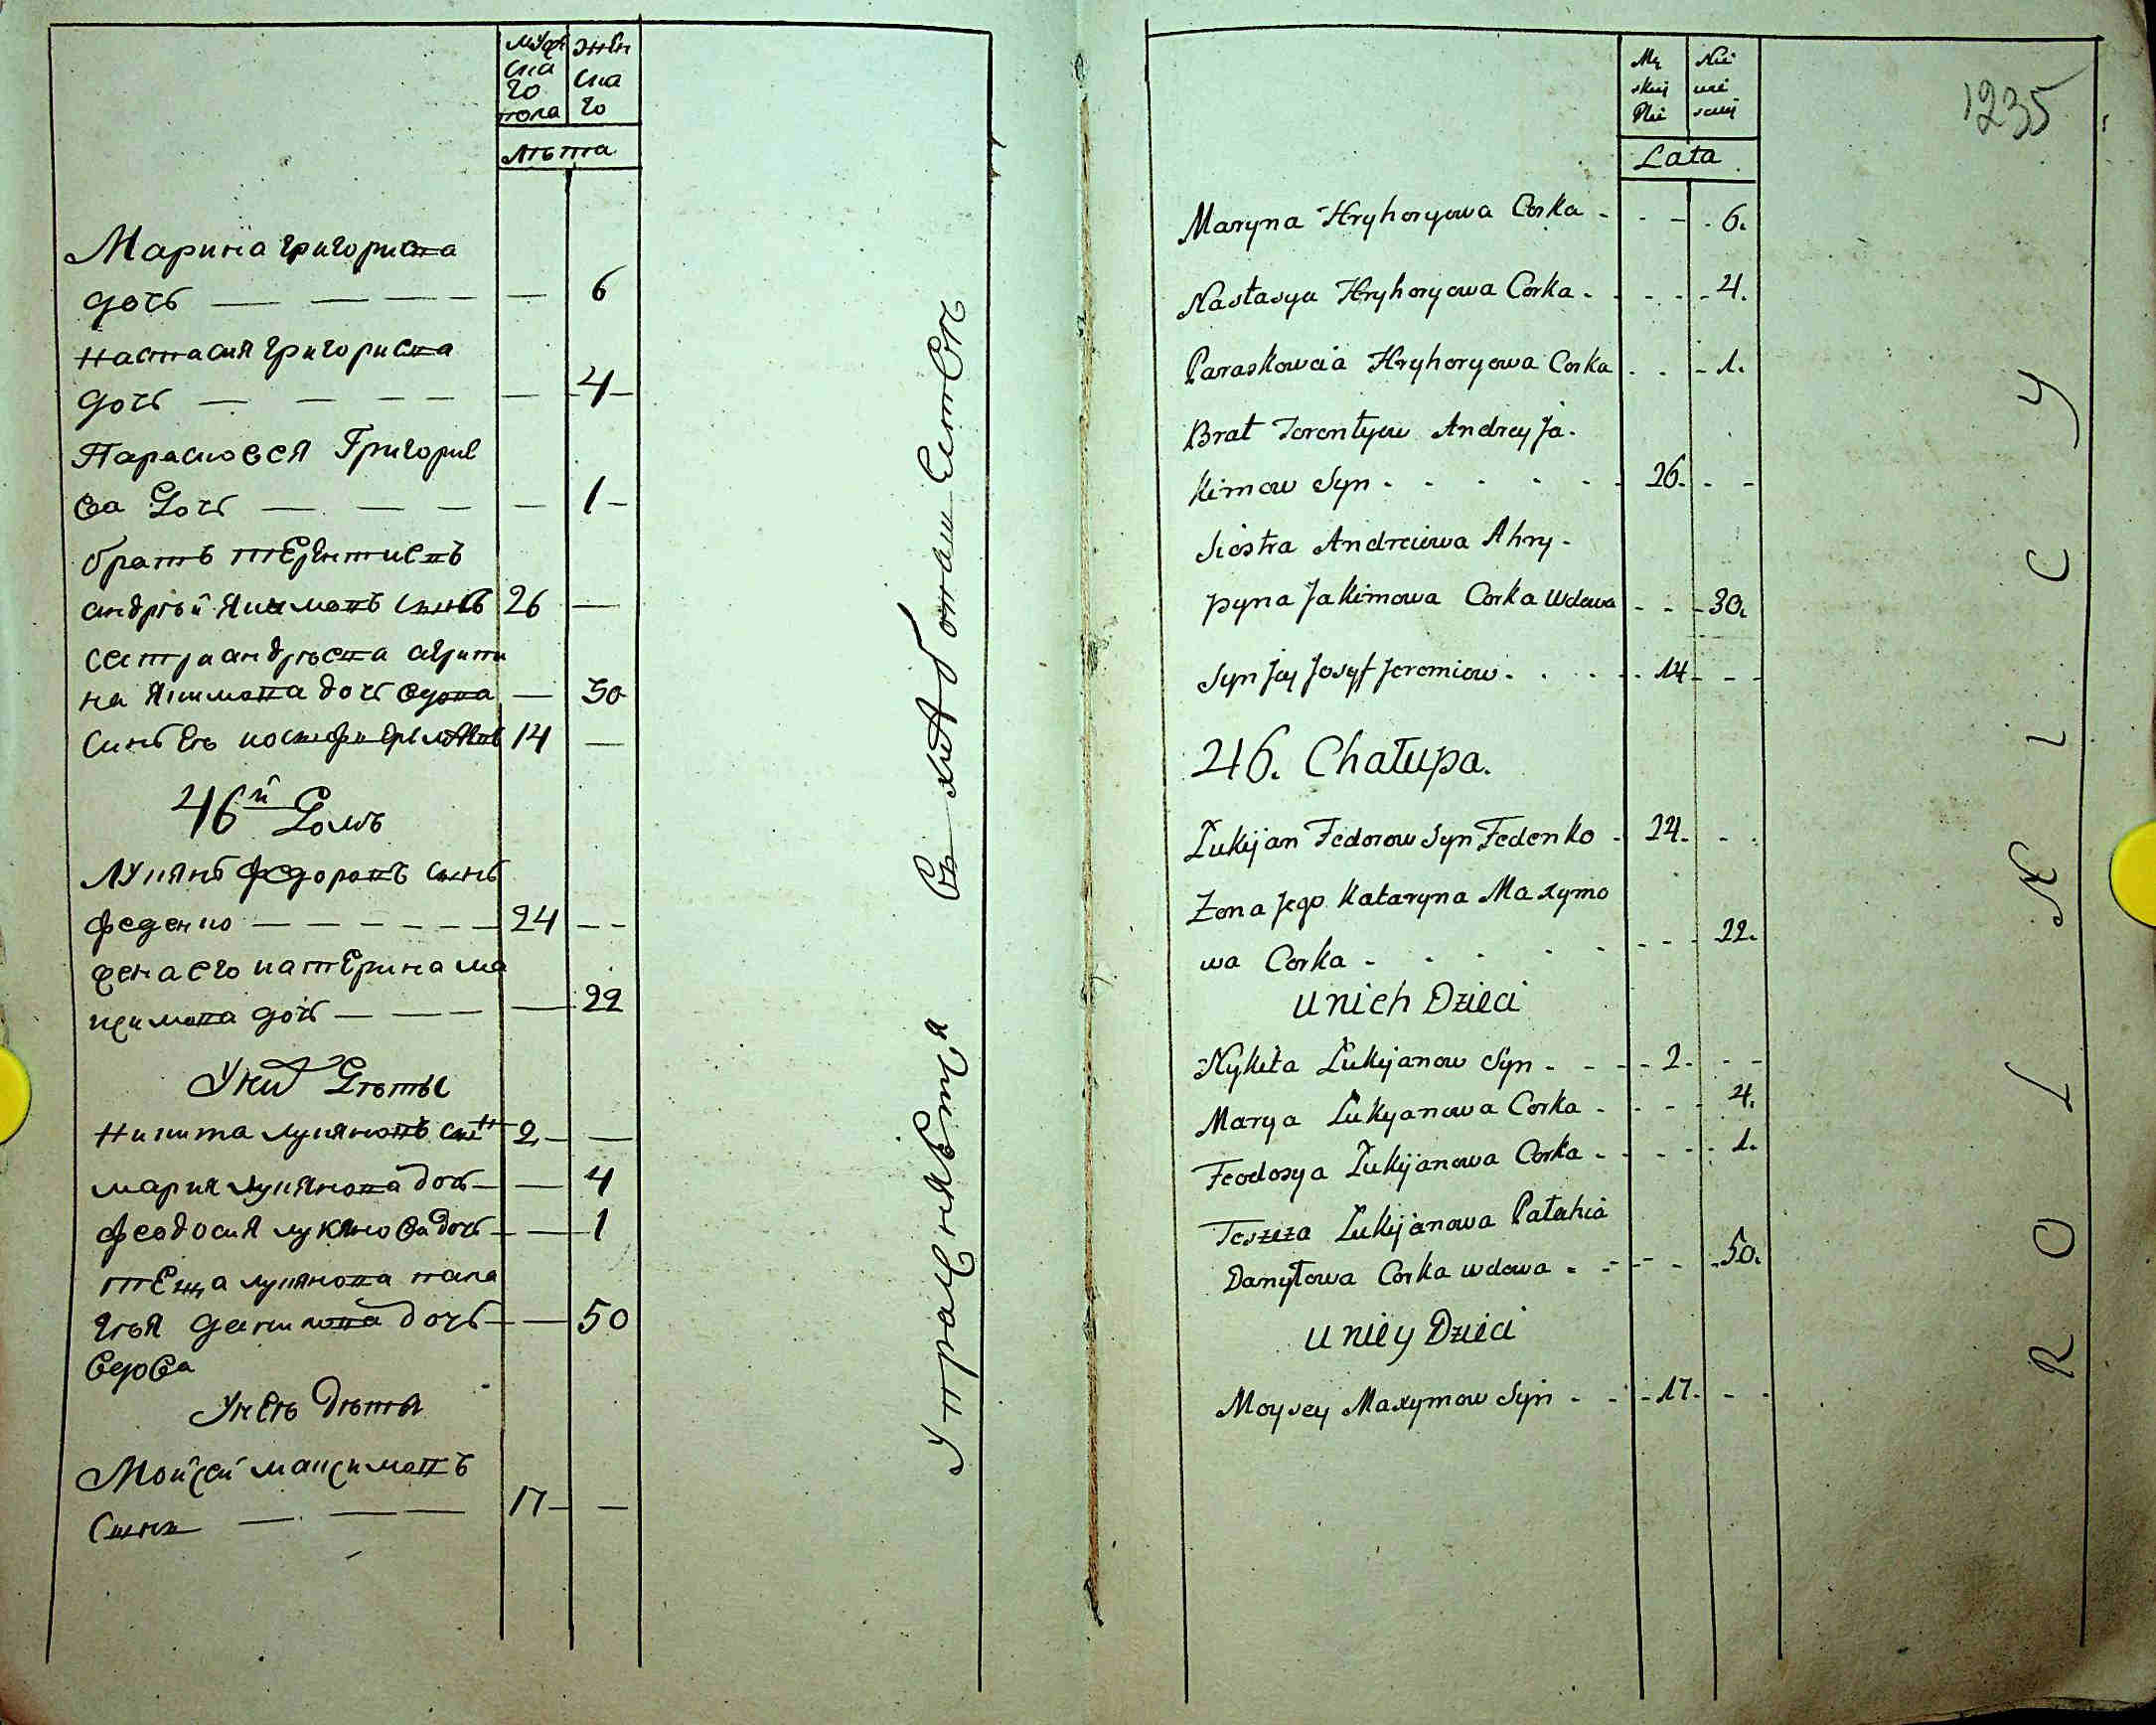 мужскаго пола
женскаго
Лѣта
Марина Григорива
дочь — — — — — 6
Настасия Григорива
дочь — — — — — 4 —
Парасковея Григорие
ва дочь — — — — 1 —
братъ терентиевъ
андрѣй Якимовъ сынъ 26 —
сестра андрѣева агрипи
на Якимова дочь вдова — 30
Синъ Еѣ иосифъ Еремѣевъ 14 —
46й Домъ
Лукянъ Федоровъ сынъ
феденко — — — — — — 24 — —
жена его катерина ма
ксимова дочь — — — — 22
У них Дѣты
Никита лукяновъ синъ 2 — —
мария лукянова дочь — — 4
феодосия лукянова дочь — — 1
теща лукянова пала
гѣя данилова дочь — — 50
вдова
У неѣ дѣты
Мойсей максимовъ
сынъ — — — 17 — —
Упражняется
въ хлѣбопашествѣ
1235
Mę
skiej
Płci
Nie
wie
sciej
Lata
Maryna Hryhoryowa Corka - - - - 6.
Nastasya Hryhoryowa Corka - - - - 4.
Paraskowia Hryhoryowa Corka . . - 1.
Brat Terentyew Andrey Ja-
kimow Syn - - - - - - 26. - -
Siostra Andreiewa Ahry-
pyna Jakimowa Corka Wdowa - - - 30.
Syn Jey Josyf Jeremiow . . . - 14 - - -
46. Chałupa.
Łukijan Fedorow Syn Fedenko - 24. - -
Żona Jego Kataryna Maxymo
wa Corka - - - - - - - - 22.
U nich Dzieci
Nykita Łukijanow Syn - - - - 2. - -
Marya Łukyanowa Corka - - - - 4.
Feodosya Łukijanowa Corka - - - - 1.
Teszcza Łukijanowa Pałahia
Danyłowa Corka wdowa - - - - - 50.
U niey Dzieci
Moysey Maxymow Syn - - - 17. - -
ROLNICY